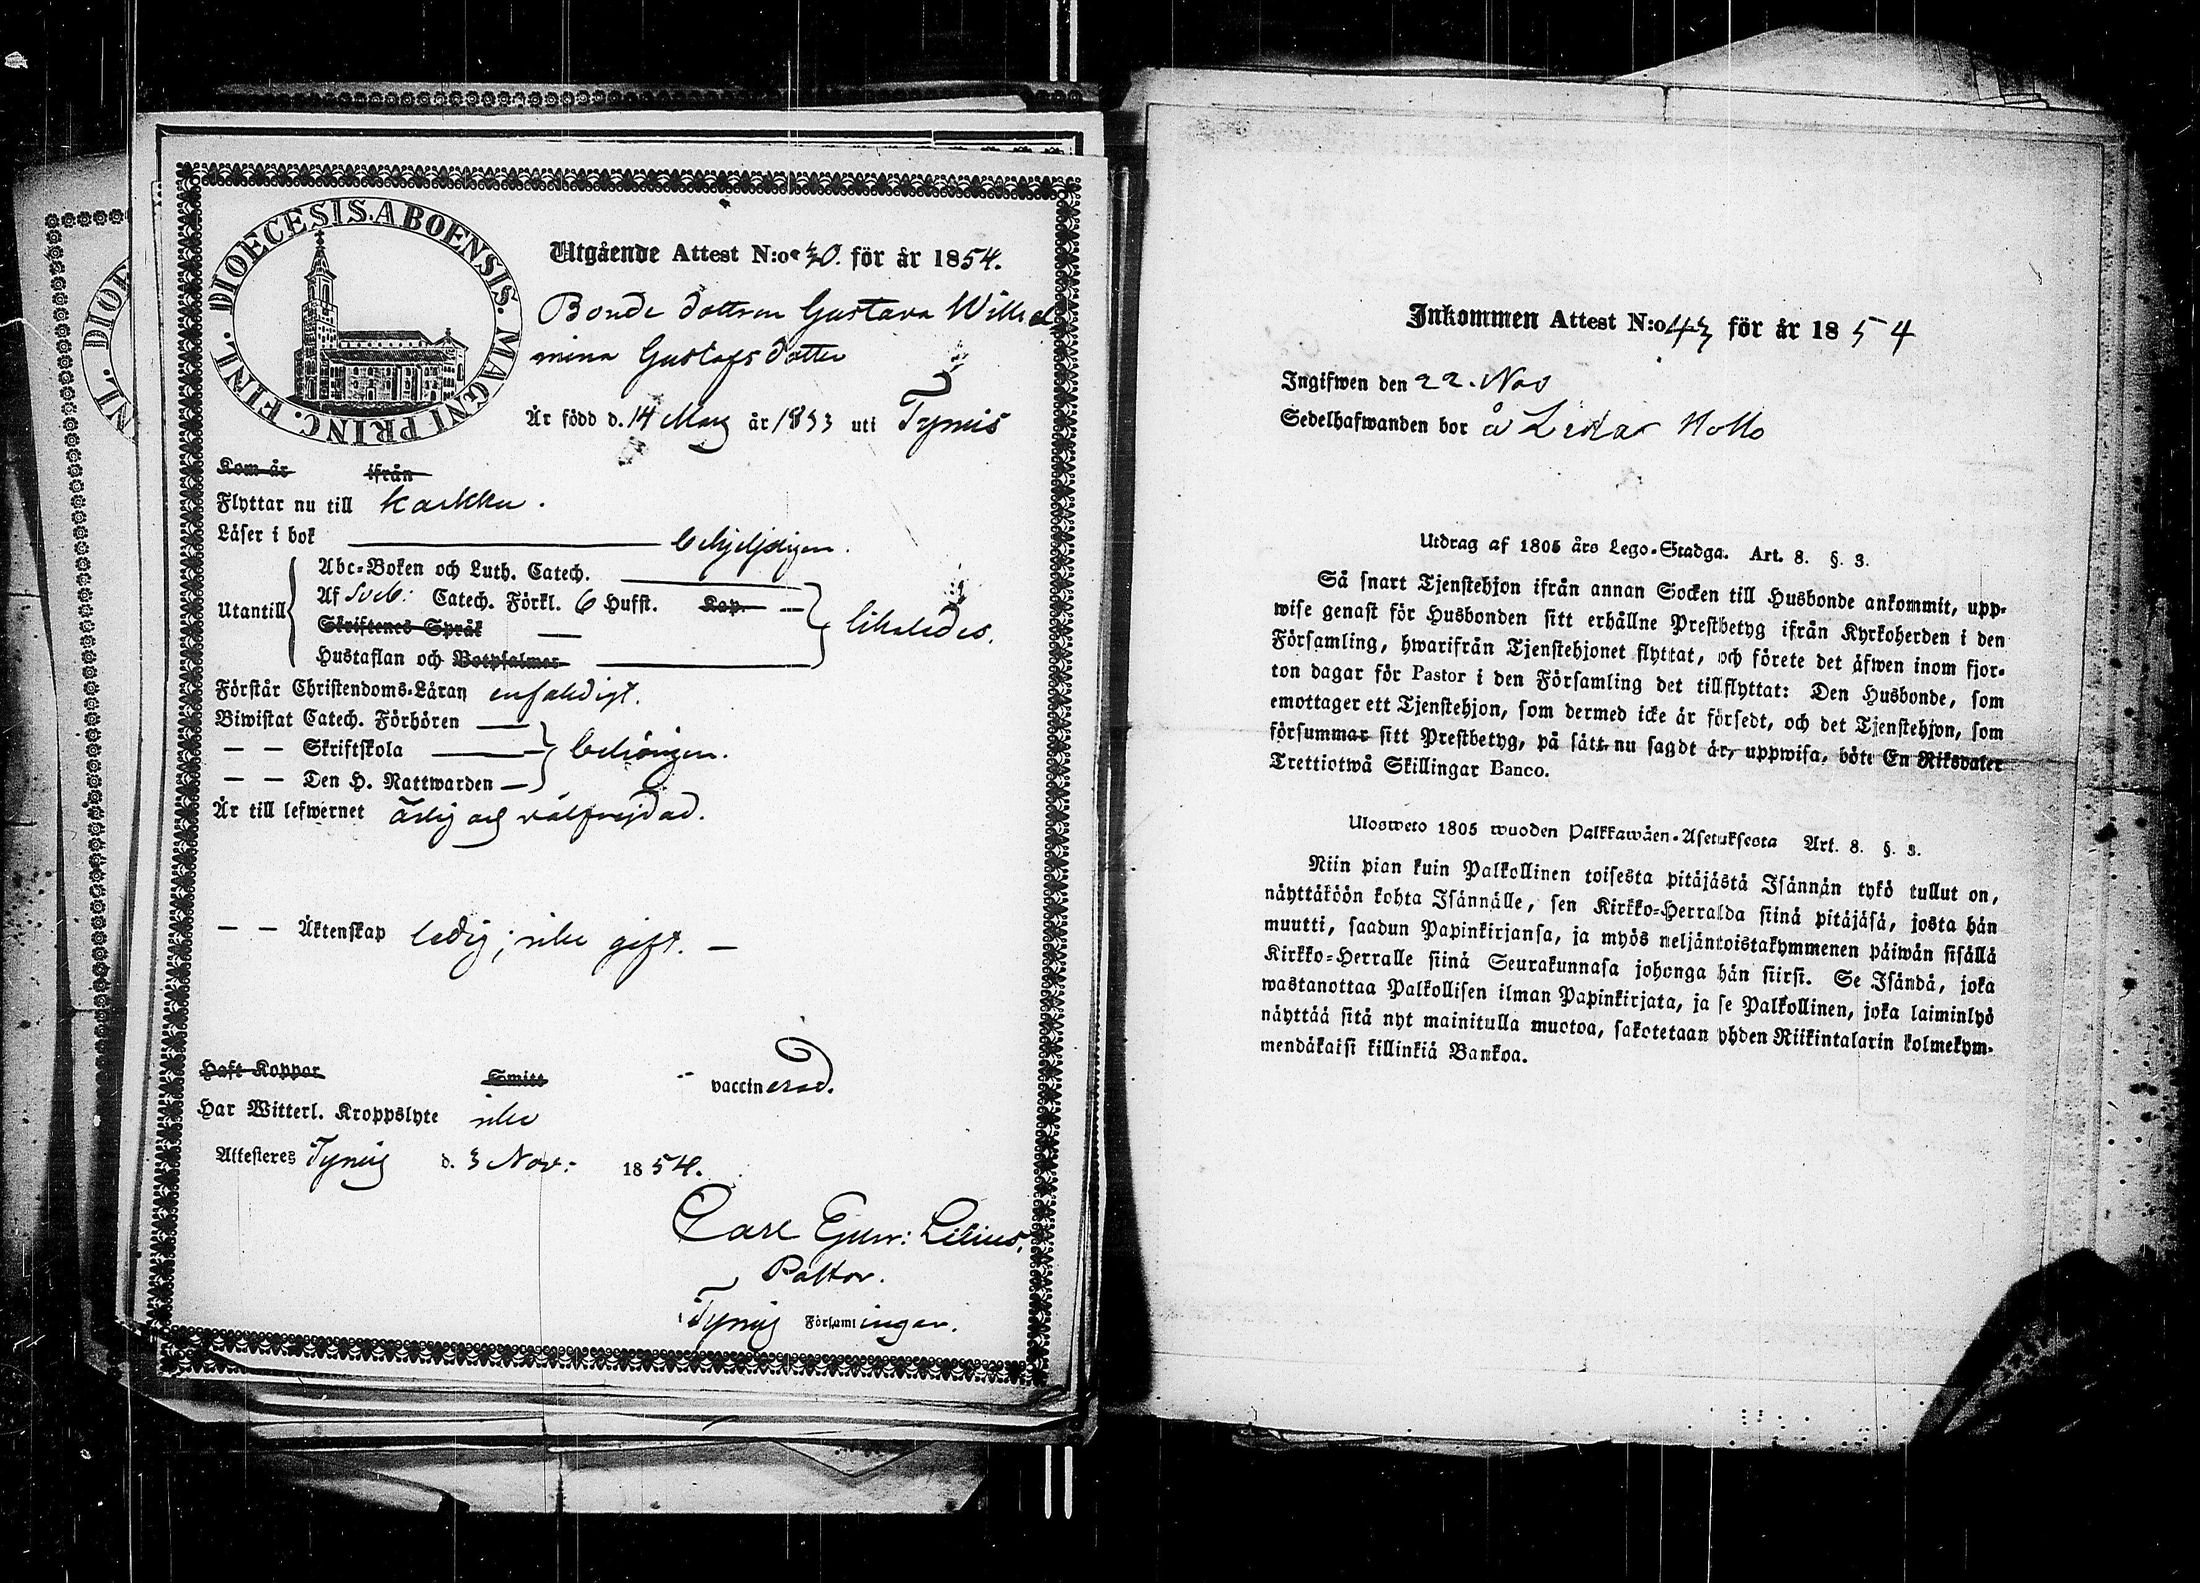 DIOECESIS. ABOENSIS. MAGNI PRINC. FINL.
Utgående Attest N:o 30. för år 1854.
Bonde dottren Gustava Wilhel
mina Gustafsdotter
Är född d. 14 Mars år 1833 uti Tyrvis
Kom år ifrån
Flyttar nu till Karkku.
Läser i bok behjelpligen.
Utantill
Abc-Boken och Luth. Catech.
Af Sveb: Catech. Förkl. 6 Hufst. Kap.
Skriftenes Språk
likaledes.
Hustaflan och Botpsalmer
Förstår Christendoms-Läran enfaldigt.
Biwistat Catech. Förhören
— — Skriftskola behörigen.
— — Den H. Nattwarden
Är till lefwernet ärlig och välfrejdad.
— — Äktenskap ledig; icke gift. —
Haft Koppor Smitt vaccinerad.
Har Witterl. Kroppslyte icke
Attesteres Tyrvis d. 3 Nov: 1854.
Carl Gust: Lilius,
Pastor.
Tyrvis Församlingar.
Inkommen Attest N:o 43 för år 1854
Ingifwen den 22. Nov
Sedelhafwanden bor å
Utdrag af 1805 års Lego-Stadga. Art. 8. §. 3.
Så snart Tjenstehjon ifrån annan Socken till Husbonde ankommit, upp-
wise genast för Husbonden sitt erhållne Prestbetyg ifrån Kyrkoherden i den
Församling, hwarifrån Tjenstehjonet flyttat, och förete det äfwen inom fjor-
ton dagar för Pastor i den Församling det tillflyttat: Den Husbonde, som
emottager ett Tjenstehjon, som dermed icke är försedt, och det Tjenstehjon, som
försummar sitt Prestbetyg, på sätt nu sagdt är, uppwisa, böte En Riksdaler
Trettiotwå Skillingar Banco.
Ulosweto 1805 wuoden Palkkawäen-Asetuksesta Art. 8. §. 3.
Niin pian kuin Palkollinen toisesta pitäjästä Isännän tykö tullut on,
näyttäköön kohta Isännälle, sen Kirkko-Herralda siinä pitäjäsä, josta hän
muutti, saadun Papinkirjansa, ja myös neljäntoistakymmenen päiwän sisällä
Kirkko-Herralle siinä Seurakunnasa johonga hän siirsi. Se Isändä, joka
wastanottaa Palkollisen ilman Papinkirjata, ja se Palkollinen, joka laiminlyö
näyttää sitä nyt mainitulla muotoa, sakotetaan yhden Riikintalarin kolmekym-
mendäkaisi killinkiä Bankoa.